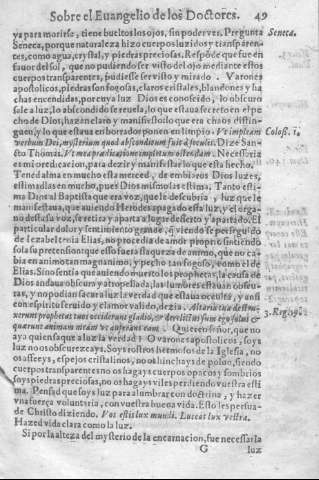 Sobre el Euangelio de los Doctores. 49
ya para morirse, tiene bueltos los ojos, sin poder ver. Pregunta Seneca.
Seneca, porque naturaleza hizo cuerpos luzidos y transparen-
tes, como agua, crystal, y piedras preciosas. Respōde que fue en
fauor del sol, que no pudiendo ser visto del ojo mediante estos
cuerpos transparentes, pudiesse ser visto y mirado. Varones
apostolicos, piedras son fogosas, claros cristales, blandones y ha
chas encendidas, por cuya luz Dios es conoscido, lo obscuro
sale a luz, lo abscondido se reuela, lo que estaua secreto en el pe-
cho de Dios, hazen claro y manifiesto lo que era chaos distin-
guen, y lo que estaua en borrador ponen en limpio. Vt impleam Coloss. 1.
verbum Dei, mysterium quod absconditum fuit à seculis. Dize San-
cto Thomas.
Necessaria
es mi predicacion, para dezir y manifestar lo que esta hecho.
Tened alma en mucho esta merced, de embiaros Dios luzes,
estimadlas en mucho, pues Dios mismo las estima. Tanto esti-
ma Dios al Baptista que era voz, que le descubria, y luz que le
manifestaua, que auiendo Herodes apagado esta luz, y el orga-
no desta su voz, se retira y aparta a lugar desierto y apartado. El
particular dolor y sentimiento grande, q̃ viendo se perseguido
de Iezabel tenia Elias, no procedia de amor proprio sintiendo
sola su pretension que esso fuera flaqueza de animo, que no ca
bia en animo tan magnanimo, y pecho tan fogoso, como el de
Elias. Sino sentia que auiendo muerto los prophetas, la causa de
Dios andaua obscura y atropellada, las lumbres estauan obscu-
ras, y no podian sacar a luz la verdad que estaua oculta, y ansi
con espiritu feruido y clamor valido, dezia, Altaria tua destru- 3. Reg. 19.
xerunt prophetas tuos occiderunt gladio, & derelictus sum ego solus &
quærunt animam meam vt auferant eam. Quieren señor, que no
aya quien saque a luz la verdad! O varones apostolicos, soys
luz no os obscurezcays. Soys rostros hermosos de la Iglesia, no
os afeeys, espejos cristalinos, no os hinchays de polso, siendo
cuerpos transparentes no os hagays cuerpos opacos y sombrios
soys piedras preciosas, no os hagays viles perdiendo vuestra esti
ma. Pensad que soys luz para alumbrar con doctrina, y hazer
vna fuerça voluntaria, con vuestra buena vida. Esto les persua-
de Christo diziendo. Vos estis lux mundi. Luceat lux vestra.
Hazed vida clara como la luz.
Si por la alteza del mysterio de la encarnacion, fue necessaria
G luz